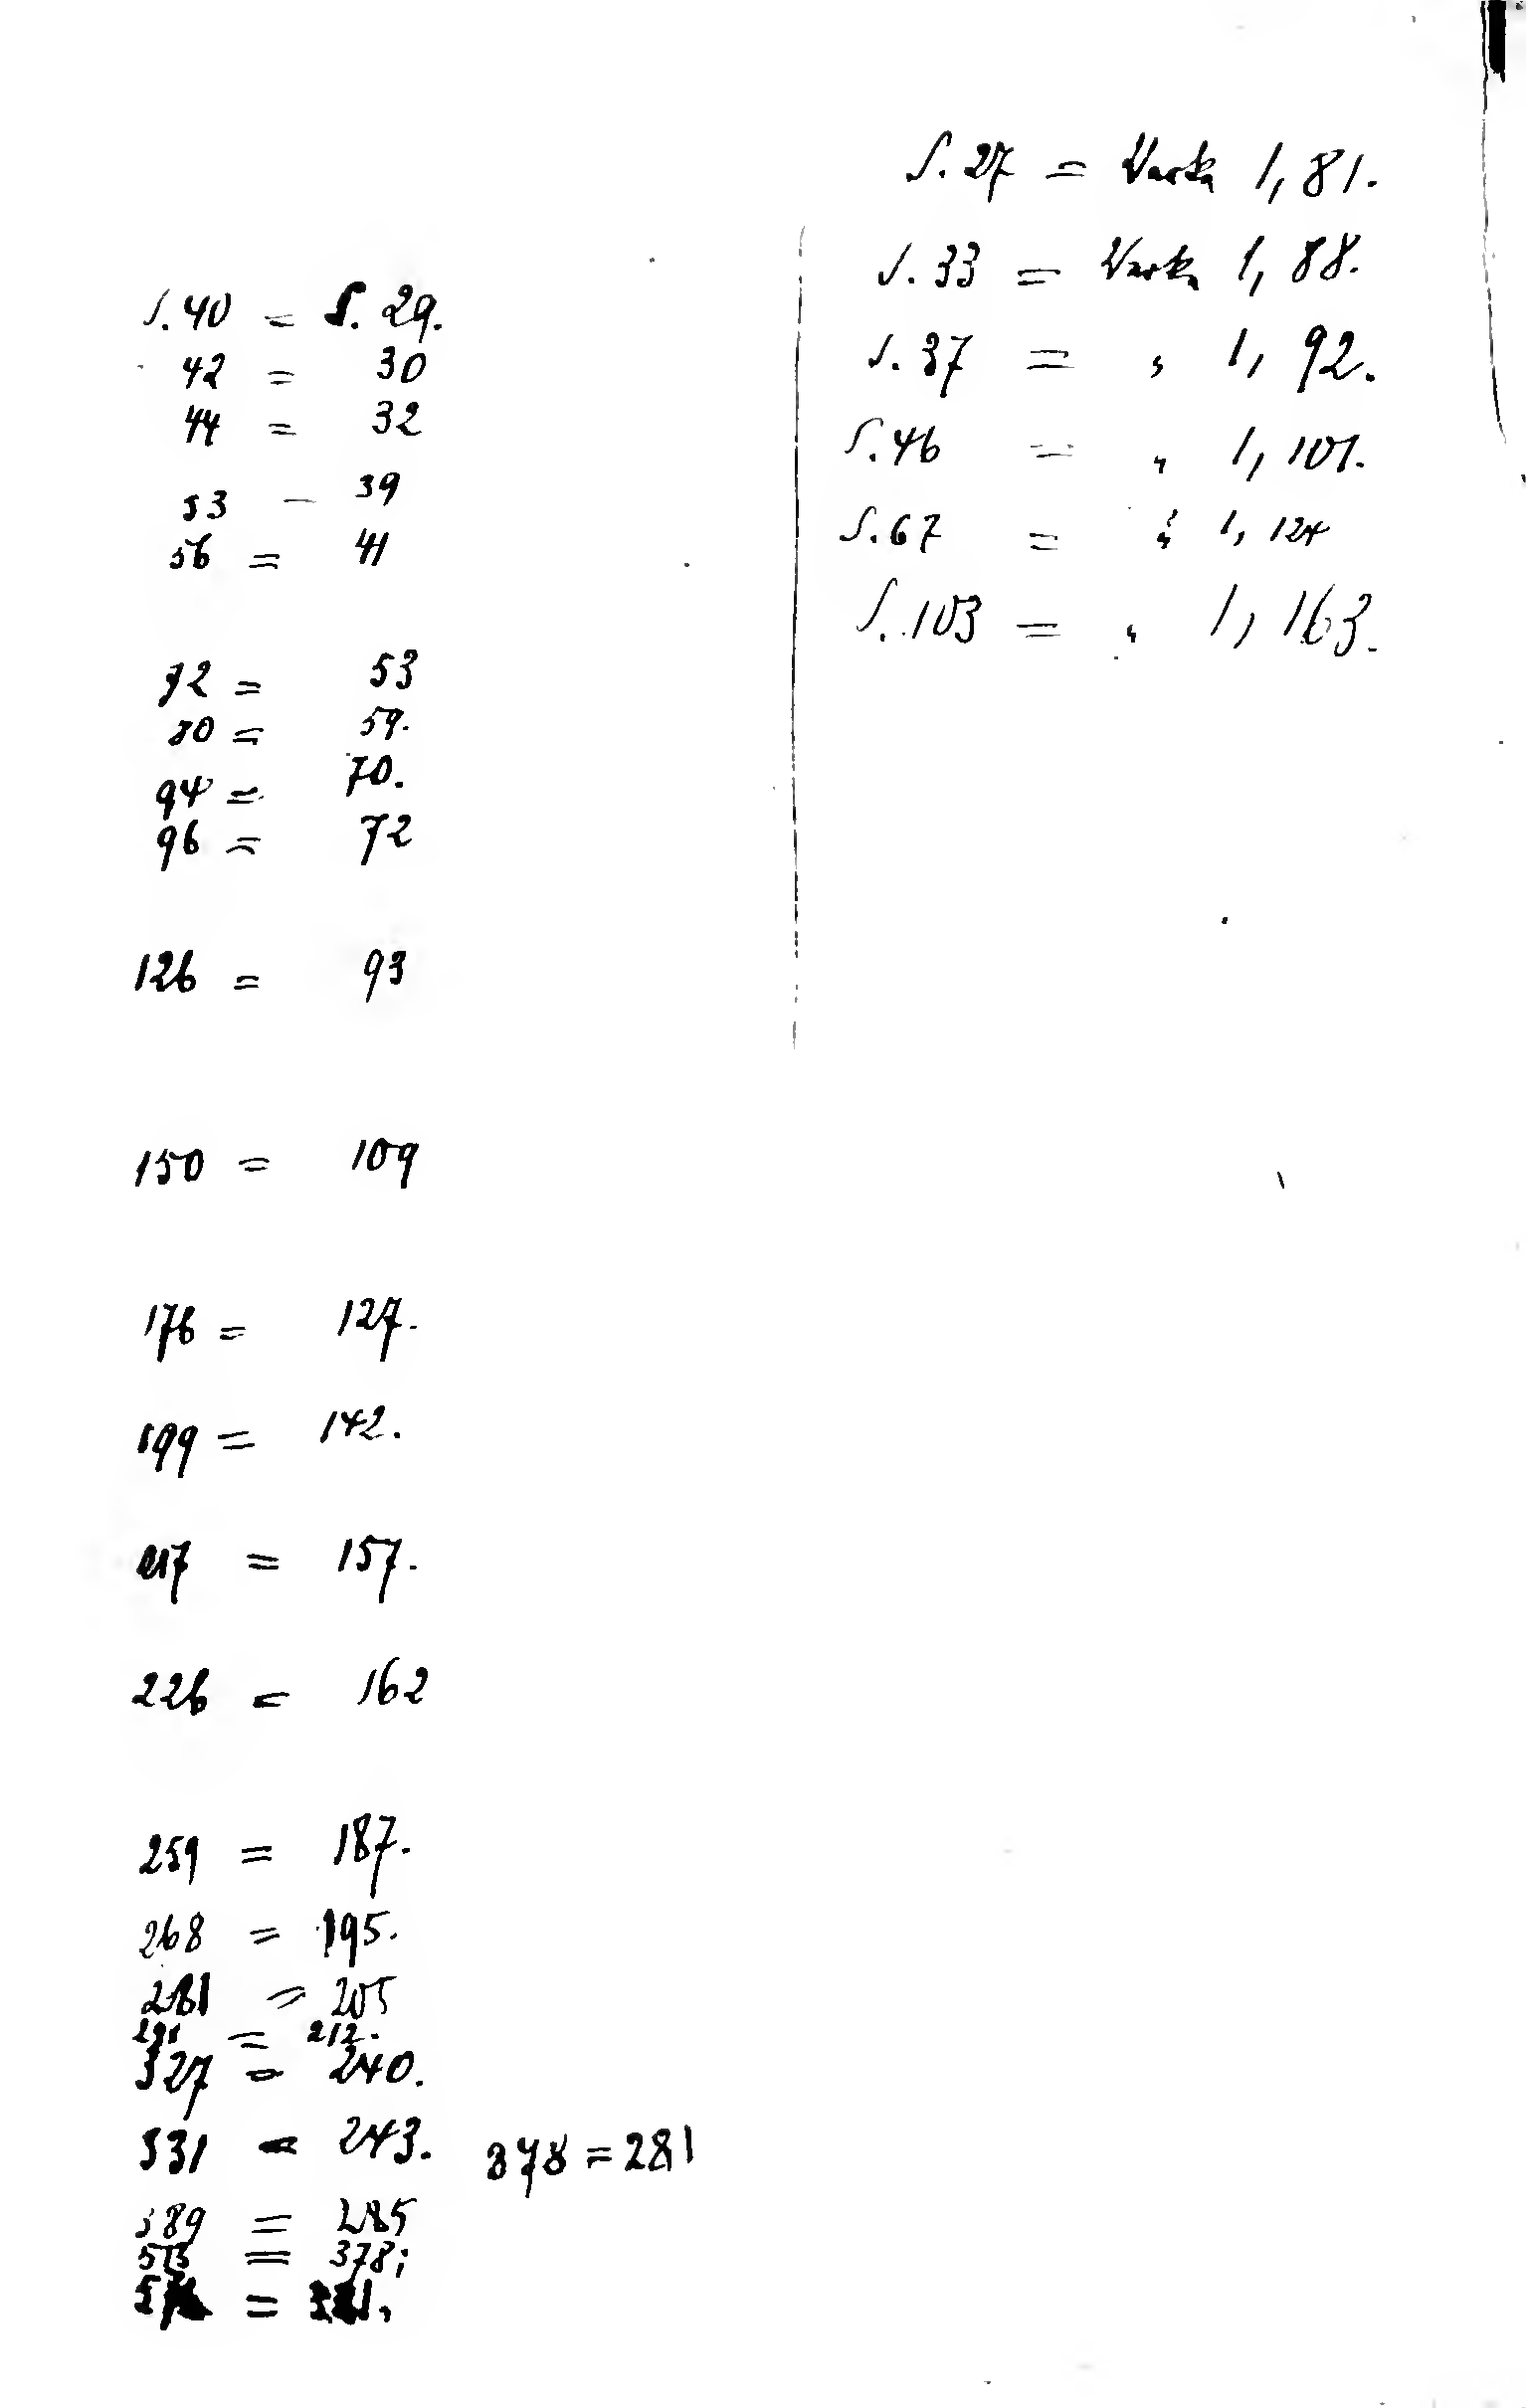 S. 27 = Werke 1, 81.
S. 33 = Werke 1, 88.
S. 37 = " 1, 92.
S. 46 = " 1, 101.
S. 67 = " 1, 124
S. 103 = " 1, 163.
S. 40 = S. 29.
42 = 30
44 = 32
53 – 39
56 = 41
72 = 53
80 = 59.
94 = 70.
96 = 72
126 = 93
150 = 109
176 = 127.
199 = 142.
217 = 157.
226 = 162
259 = 187.
268 = 195.
281 = 205
291 = 212.
327 = 240.
331 = 243. 378 = 281
389 = 285
513 = 378;